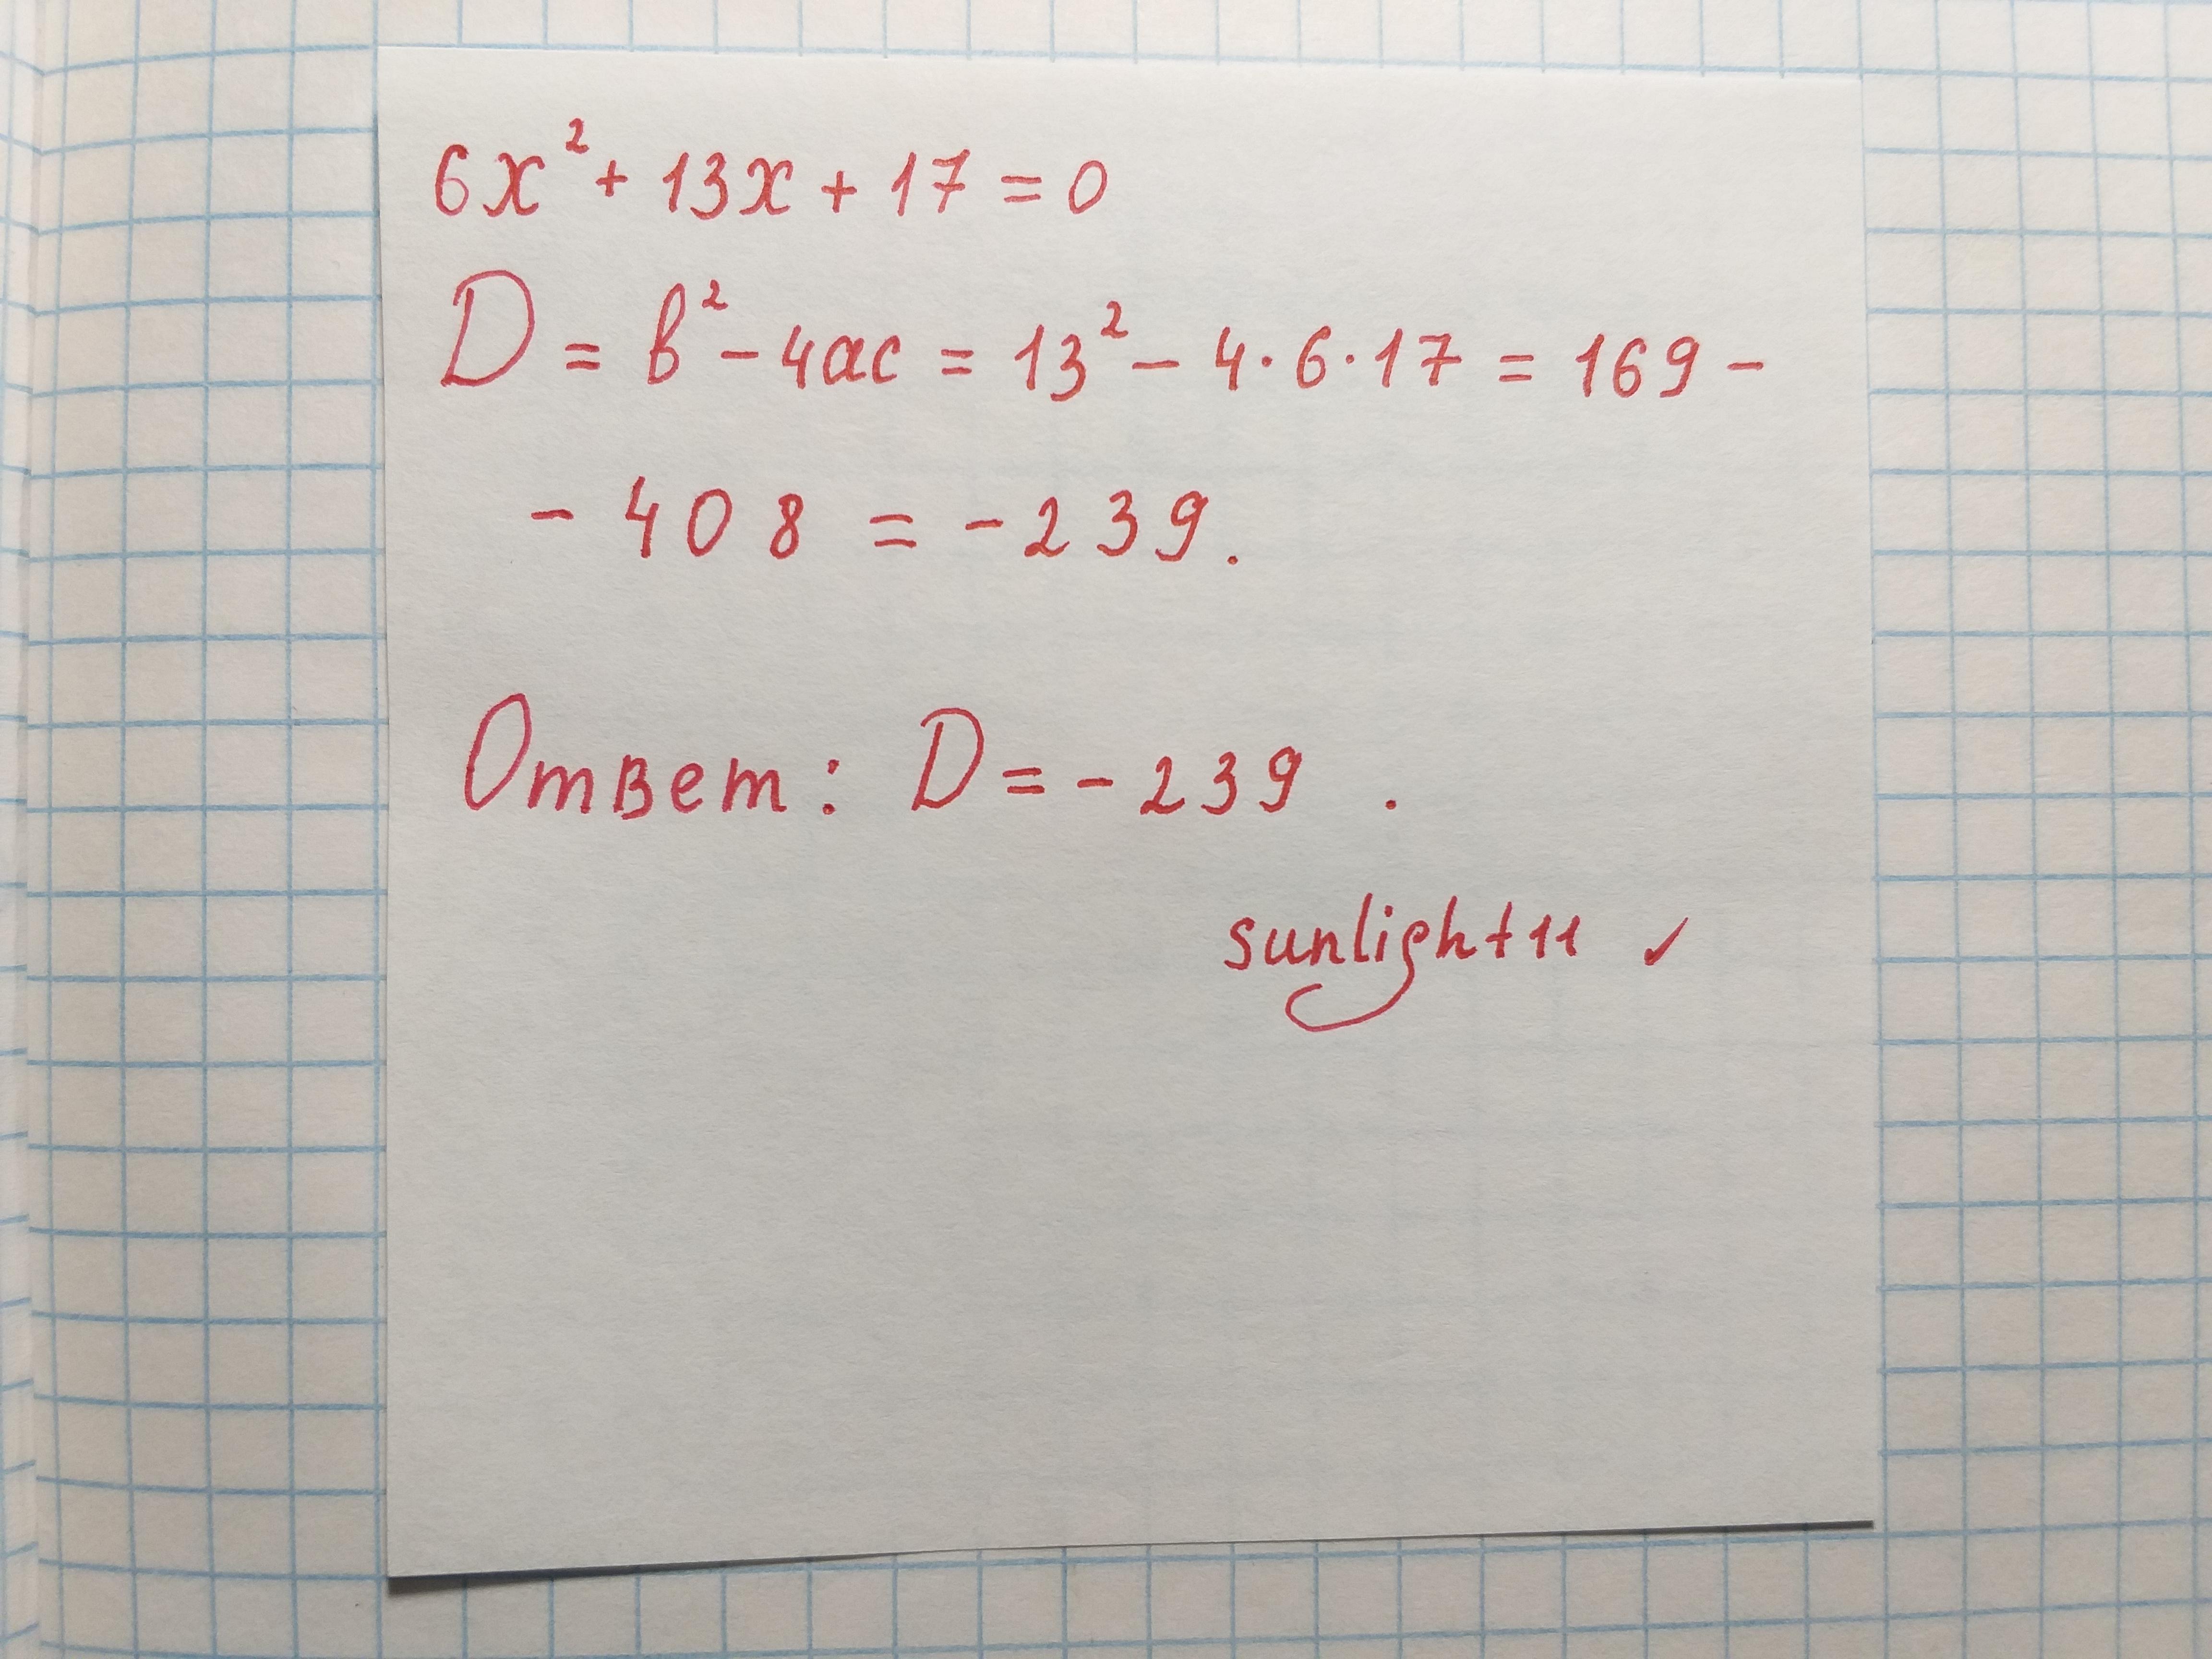 6x² + 13x + 17 = 0
D = b² - 4ac = 13² - 4·6·17 = 169 -
- 408 = -239.
Ответ: D = -239 .
sunlight11 ✓